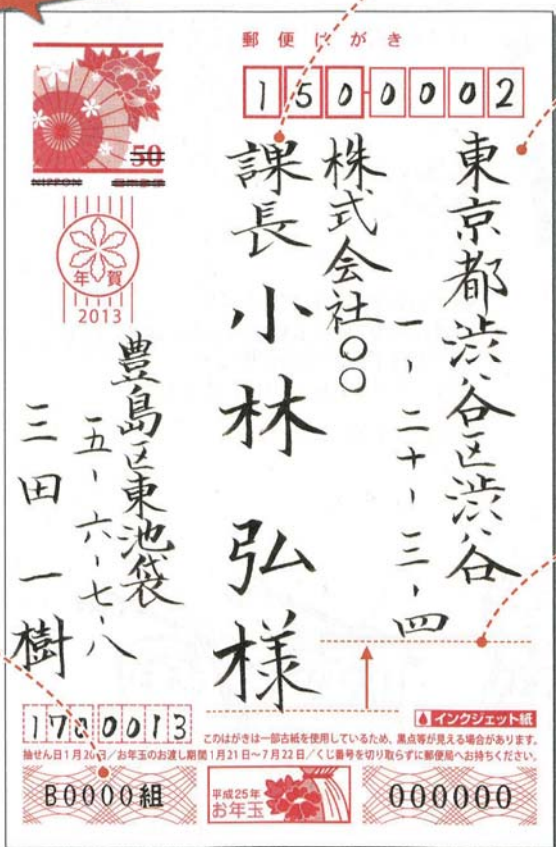 郵便はがき
1500002
東京都渋谷区渋谷
一-二十-三-四
株式会社○○
課長 小林 弘様
50
NIPPON
年賀
2013
豊島区東池袋
五-六-七-八
三田一樹
1700013
インクジェット紙
このはがきは一部古紙を使用しているため、黒点等が見える場合があります。
抽せん日1月20日/お年玉のお渡し期間1月21日~7月22日/くじ番号を切り取らずに郵便局へお持ちください。
B0000組
平成25年
お年玉
000000